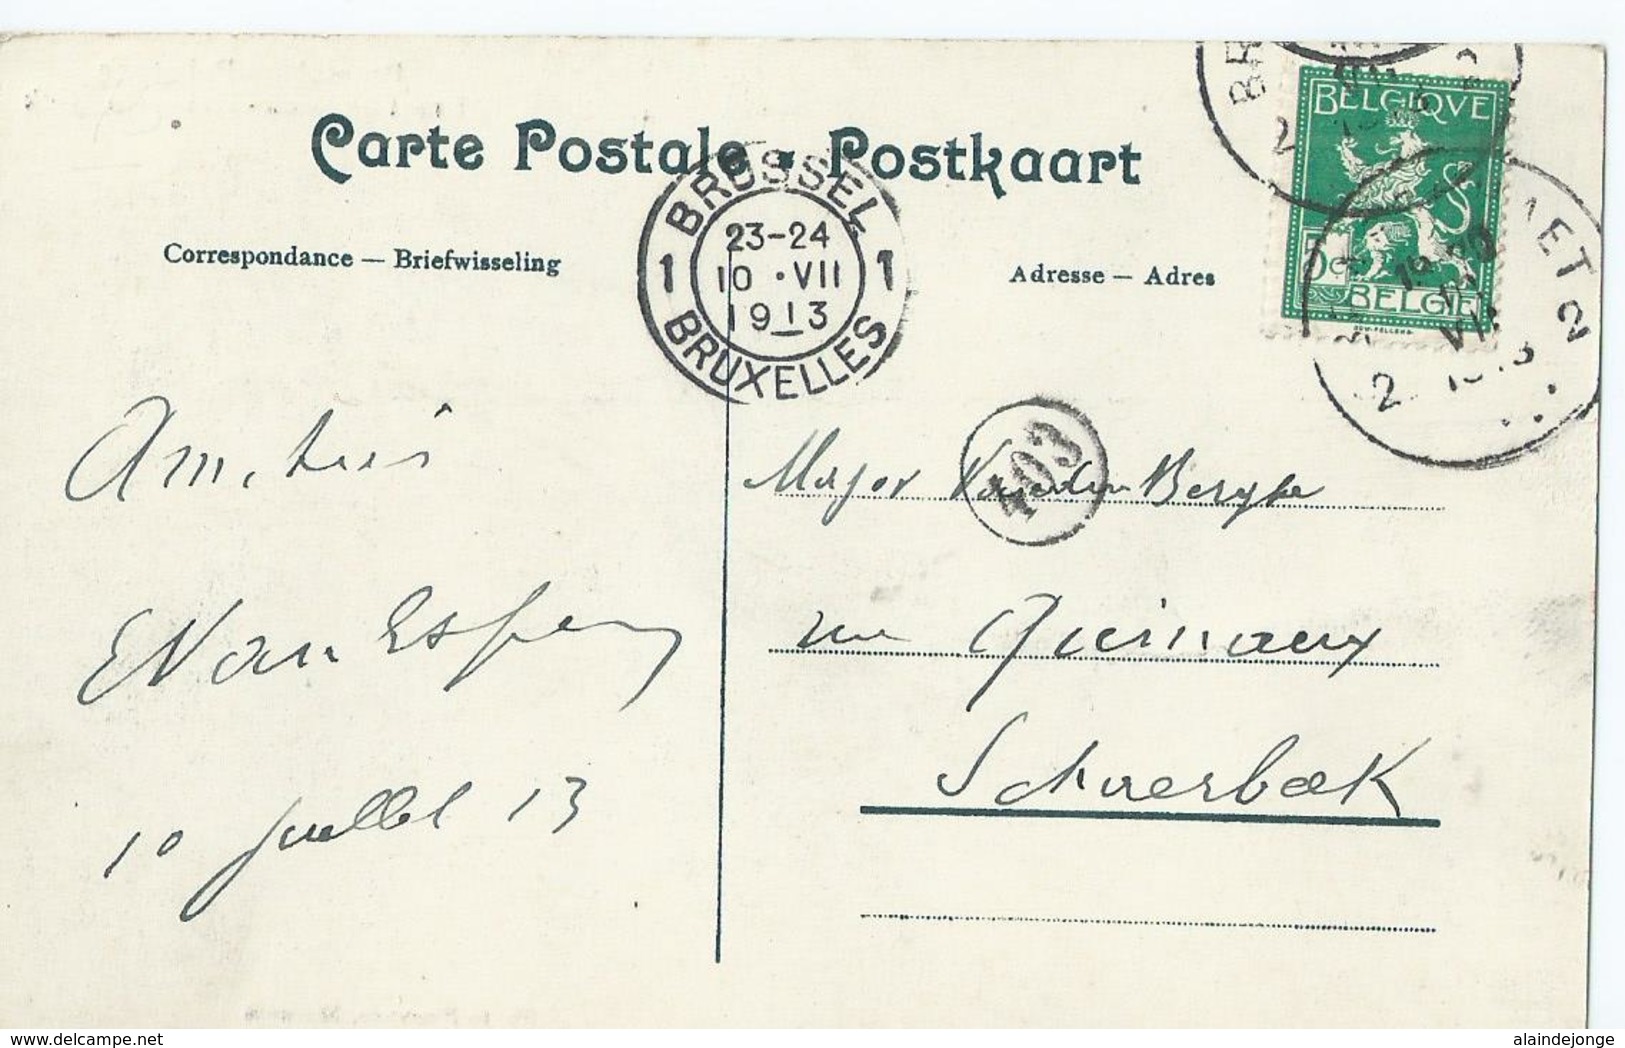 Carte Postale • Postkaart
Correspondance — Briefwisseling
Adresse — Adres
BRUSSEL
23-24
1 10 • VII 1
1913
BRUXELLES
BELGIQVE
5c
BELGIË
2
1913
403
Amitiés
E Van Espen
10 juillet 13
Major Berghe
rue Quinaux
Schaerbeek
alaindejonge